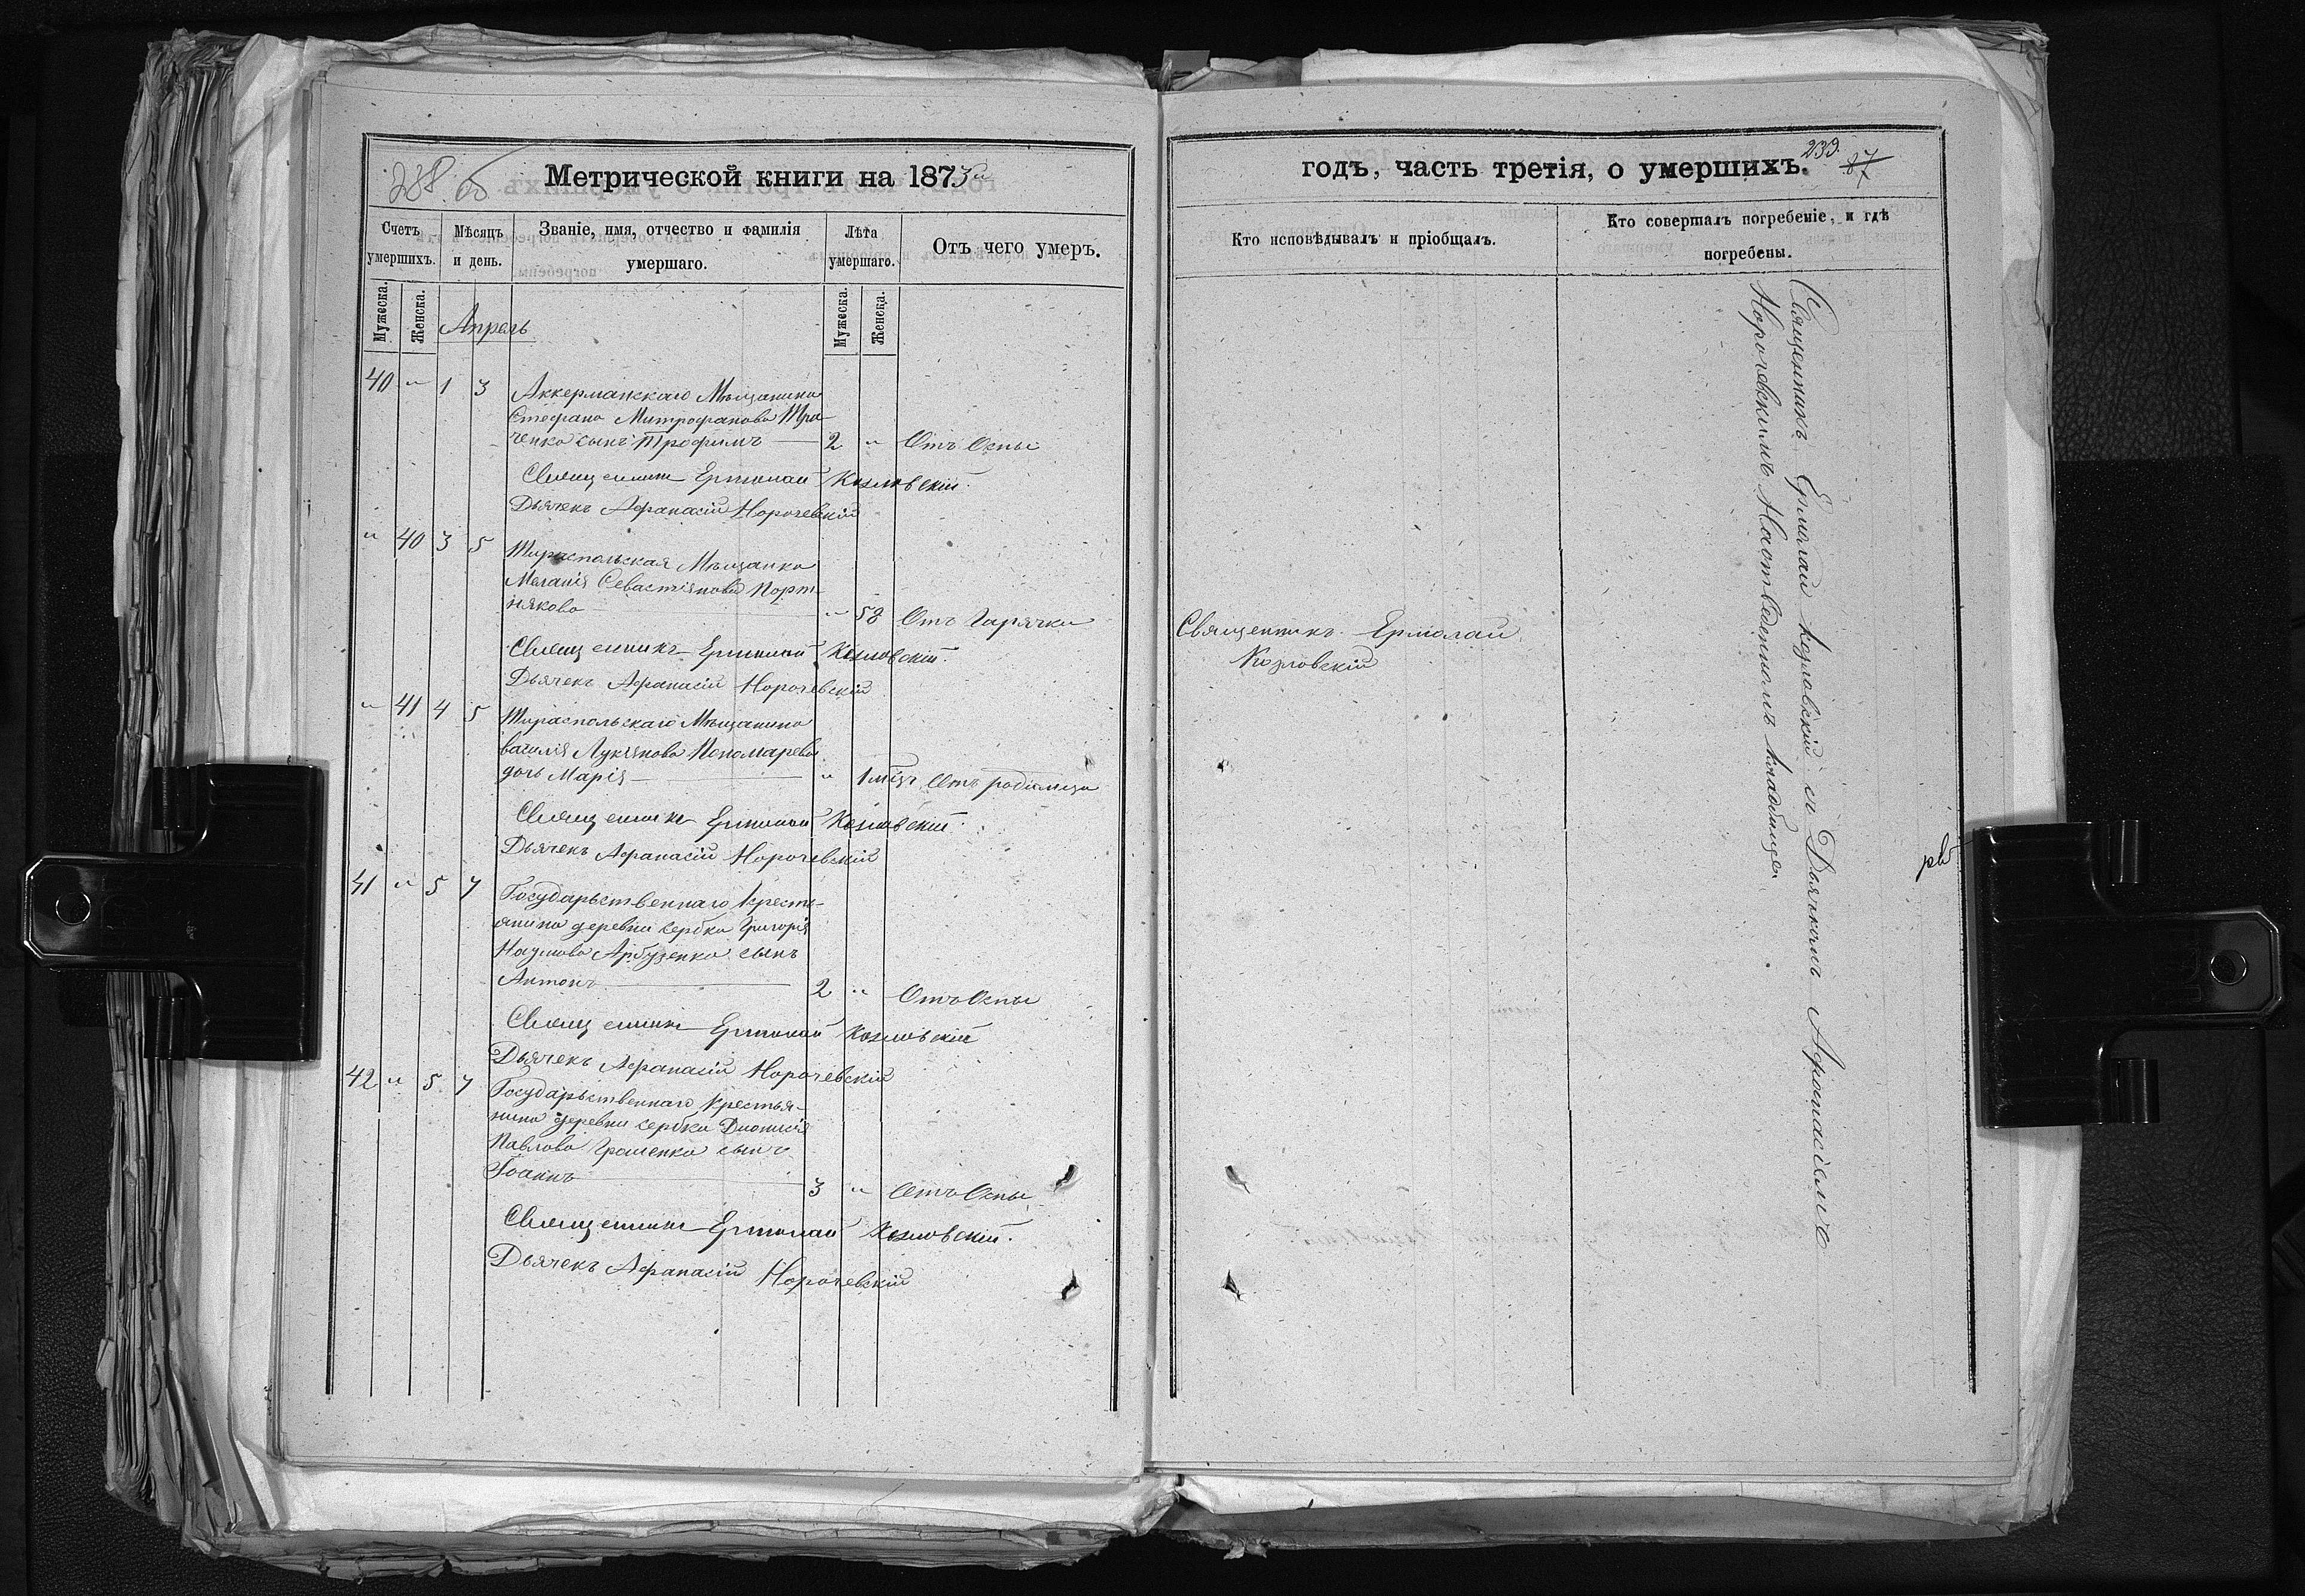 238 об
Метрической книги на 1873й
Счетъ умершихъ.
Мѣсяцъ и день.
Званіе, имя, отчество и фамилія умершаго.
Лѣта умершаго.
Отъ чего умеръ.
Мужеска.
Женска.
Мужеска.
Женска.
Апрель
40 " 1 3 Аккерманскаго Мѣщанина
Стефана Митрофанова
ченко сынъ Трофимъ 2 " Отъ Оспы
Священникъ Ермолай Козловскій.
Дьячекъ Афанасій Норочевскій
" 40 3 5 Тираспольская Мѣщанка
Меланія Севастіянова Порт-
някова " 58 Отъ Гарячки
Священникъ Ермолай Козловскій.
Дьячекъ Афанасій Норочевскій
" 41 4 5 Тираспольскаго Мѣщанина
Василія Лукіянова Пономарева
дочь Марія " 1 мѣц. Отъ родимца
Священникъ Ермолай Козловскій.
Дьячекъ Афанасій Норочевскій
41 " 5 7 Государьственнаго Кресть-
янина деревни Сербки Григорія
Наумова Арбузенка сынъ
Антонъ 2 " Отъ Оспы
Священникъ Ермолай Козловскій
Дьячекъ Афанасій Норочевскій
42 " 5 7 Государьственнаго Крестья-
нина деревни Сербки Дионисія
Павлова Грошенка сынъ
Іоаннъ 3 " Отъ Оспы
Священникъ Ермолай Козловскій.
Дьячекъ Афанасій Норочевскій
годъ, часть третія, о умершихъ.
239.
87
Кто исповѣдывалъ и пріобщалъ.
Кто совершалъ погребеніе, и гдѣ
погребены.
Священникъ Ермолай
Козловскій
Священникъ Ермолай Козловскій съ Дьячкомъ Афонасіемъ
Норочевскимъ На отведенномъ кладбище.